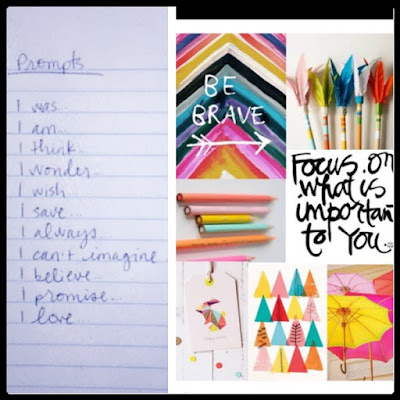 Prompts
I was...
I am...
I think...
I wonder...
I wish...
I save...
I always...
I can't imagine
I believe...
I promise...
I love...
BE
BRAVE
Focus on
what is
importan
to You.